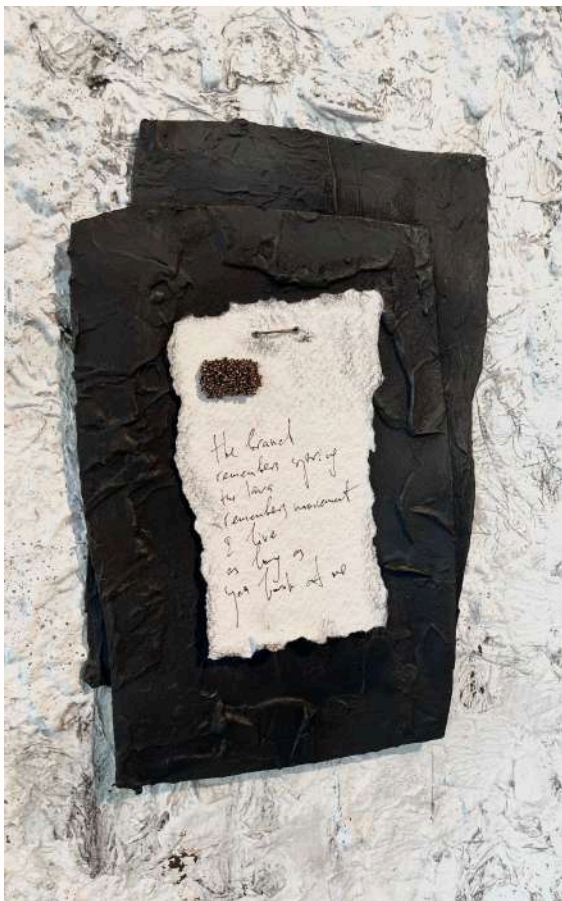 the branch
remembers spring
the lava
remembers movement
I live
as long as
you look at me